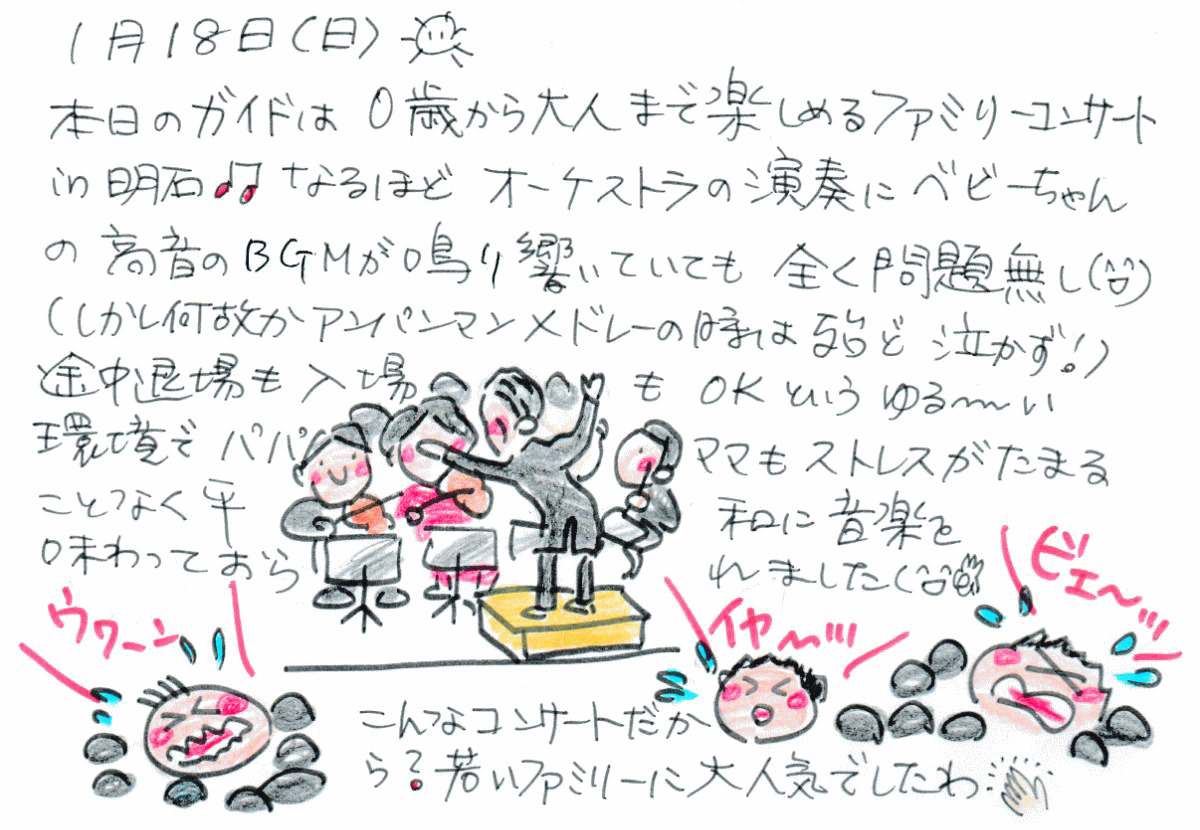 1月18日(日)
本日のガイドは 0歳から大人まで楽しめるファミリーコンサート
in 明石♫ なるほど オーケストラの演奏にベビーちゃん
の高音のBGMが鳴り響いていても 全く問題無し(^^)
(しかし何故かアンパンマンメドレーの時は殆ど泣かず!)
途中退場も入場 も OKというゆる〜い
環境で パパ ママもストレスがたまる
ことなく平 和に音楽を
味わっておら れました(^^)
ウワーン
イヤ〜
ビェ〜
こんなコンサートだか
ら?若いファミリーに大人気でしたわ